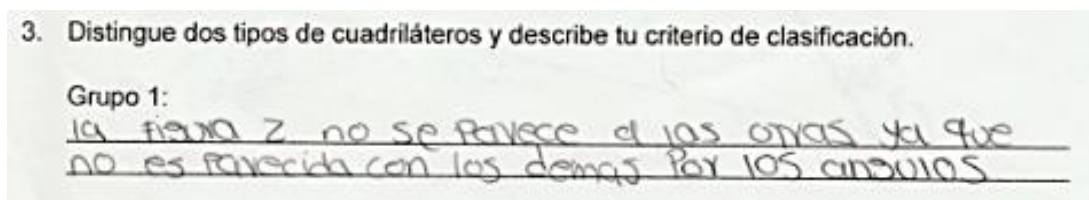 3. Distingue dos tipos de cuadriláteros y describe tu criterio de clasificación.
Grupo 1:
la figura 2 no se parece a las otras ya que
no es parecida con los demas Por los angulos